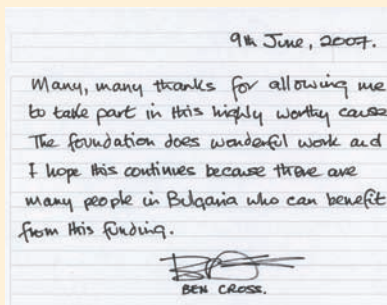 9th June, 2007.
Many, many thanks for allowing me
to take part in this highly worthy cause
The foundation does wonderful work and
I hope this continues because there are
many people in Bulgaria who can benefit
from this funding.
BEN CROSS.